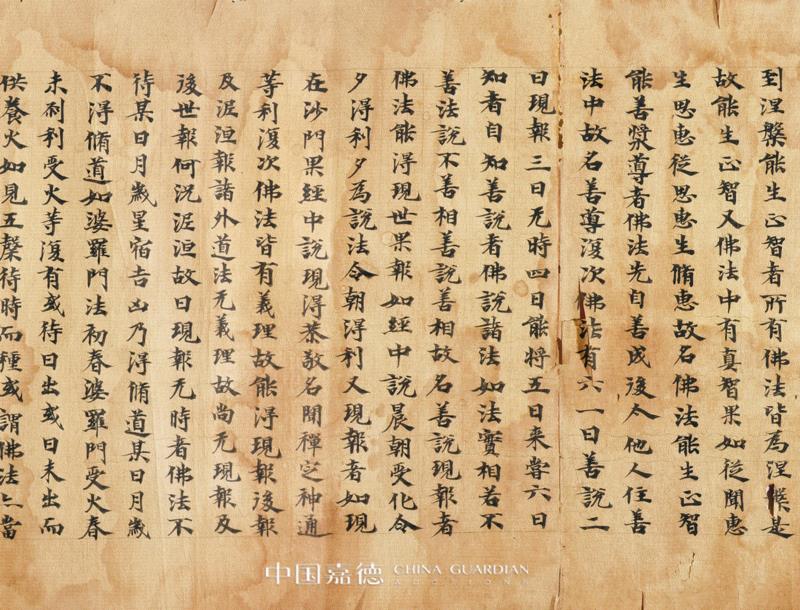 到涅槃能生正智者所有佛法皆為涅槃是
故能生正智又佛法中有真智果如從聞惠
生思惠從思惠生脩惠故名佛法能生正智
能善漿導者佛法先自善成後令他人住善
法中故名善導復次佛法有六一曰善說二
曰現報三曰无時四曰能將五曰来嘗六曰
知者自知善說者佛說諸法如法實相若不
善法說不善相善說善相故名善說現報者
佛法能得現世果報如經中說晨朝受化令
夕得利夕為說法令朝得利又現報者如現
在沙門果經中說現得恭敬名聞禪定神通
等利復次佛法皆有義理故能得現報後報
及泥洹報諸外道法无義理故尚无現報及
後世報何況泥洹故曰現報无時者佛法不
待某日月歲星宿吉凶乃得脩道某日月歲
不得脩道如婆羅門法初春婆羅門受火春
末刹利受火等復有或待日出或日未出而
供養火如見五聲待時而種或謂佛法亦當
中国嘉德 CHINA GUARDIAN
AUCTIONS